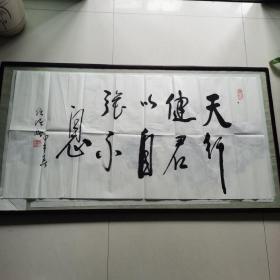 天行
健君
以自
强不
息